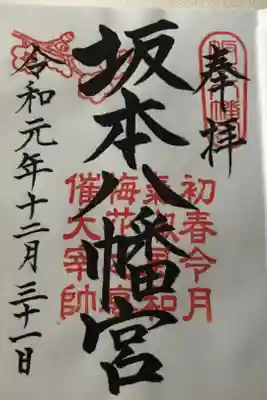 奉拝
坂本八幡宮
令和元年十二月三十一日
初春令月
氣淑風和
梅花宴
催大宰帥